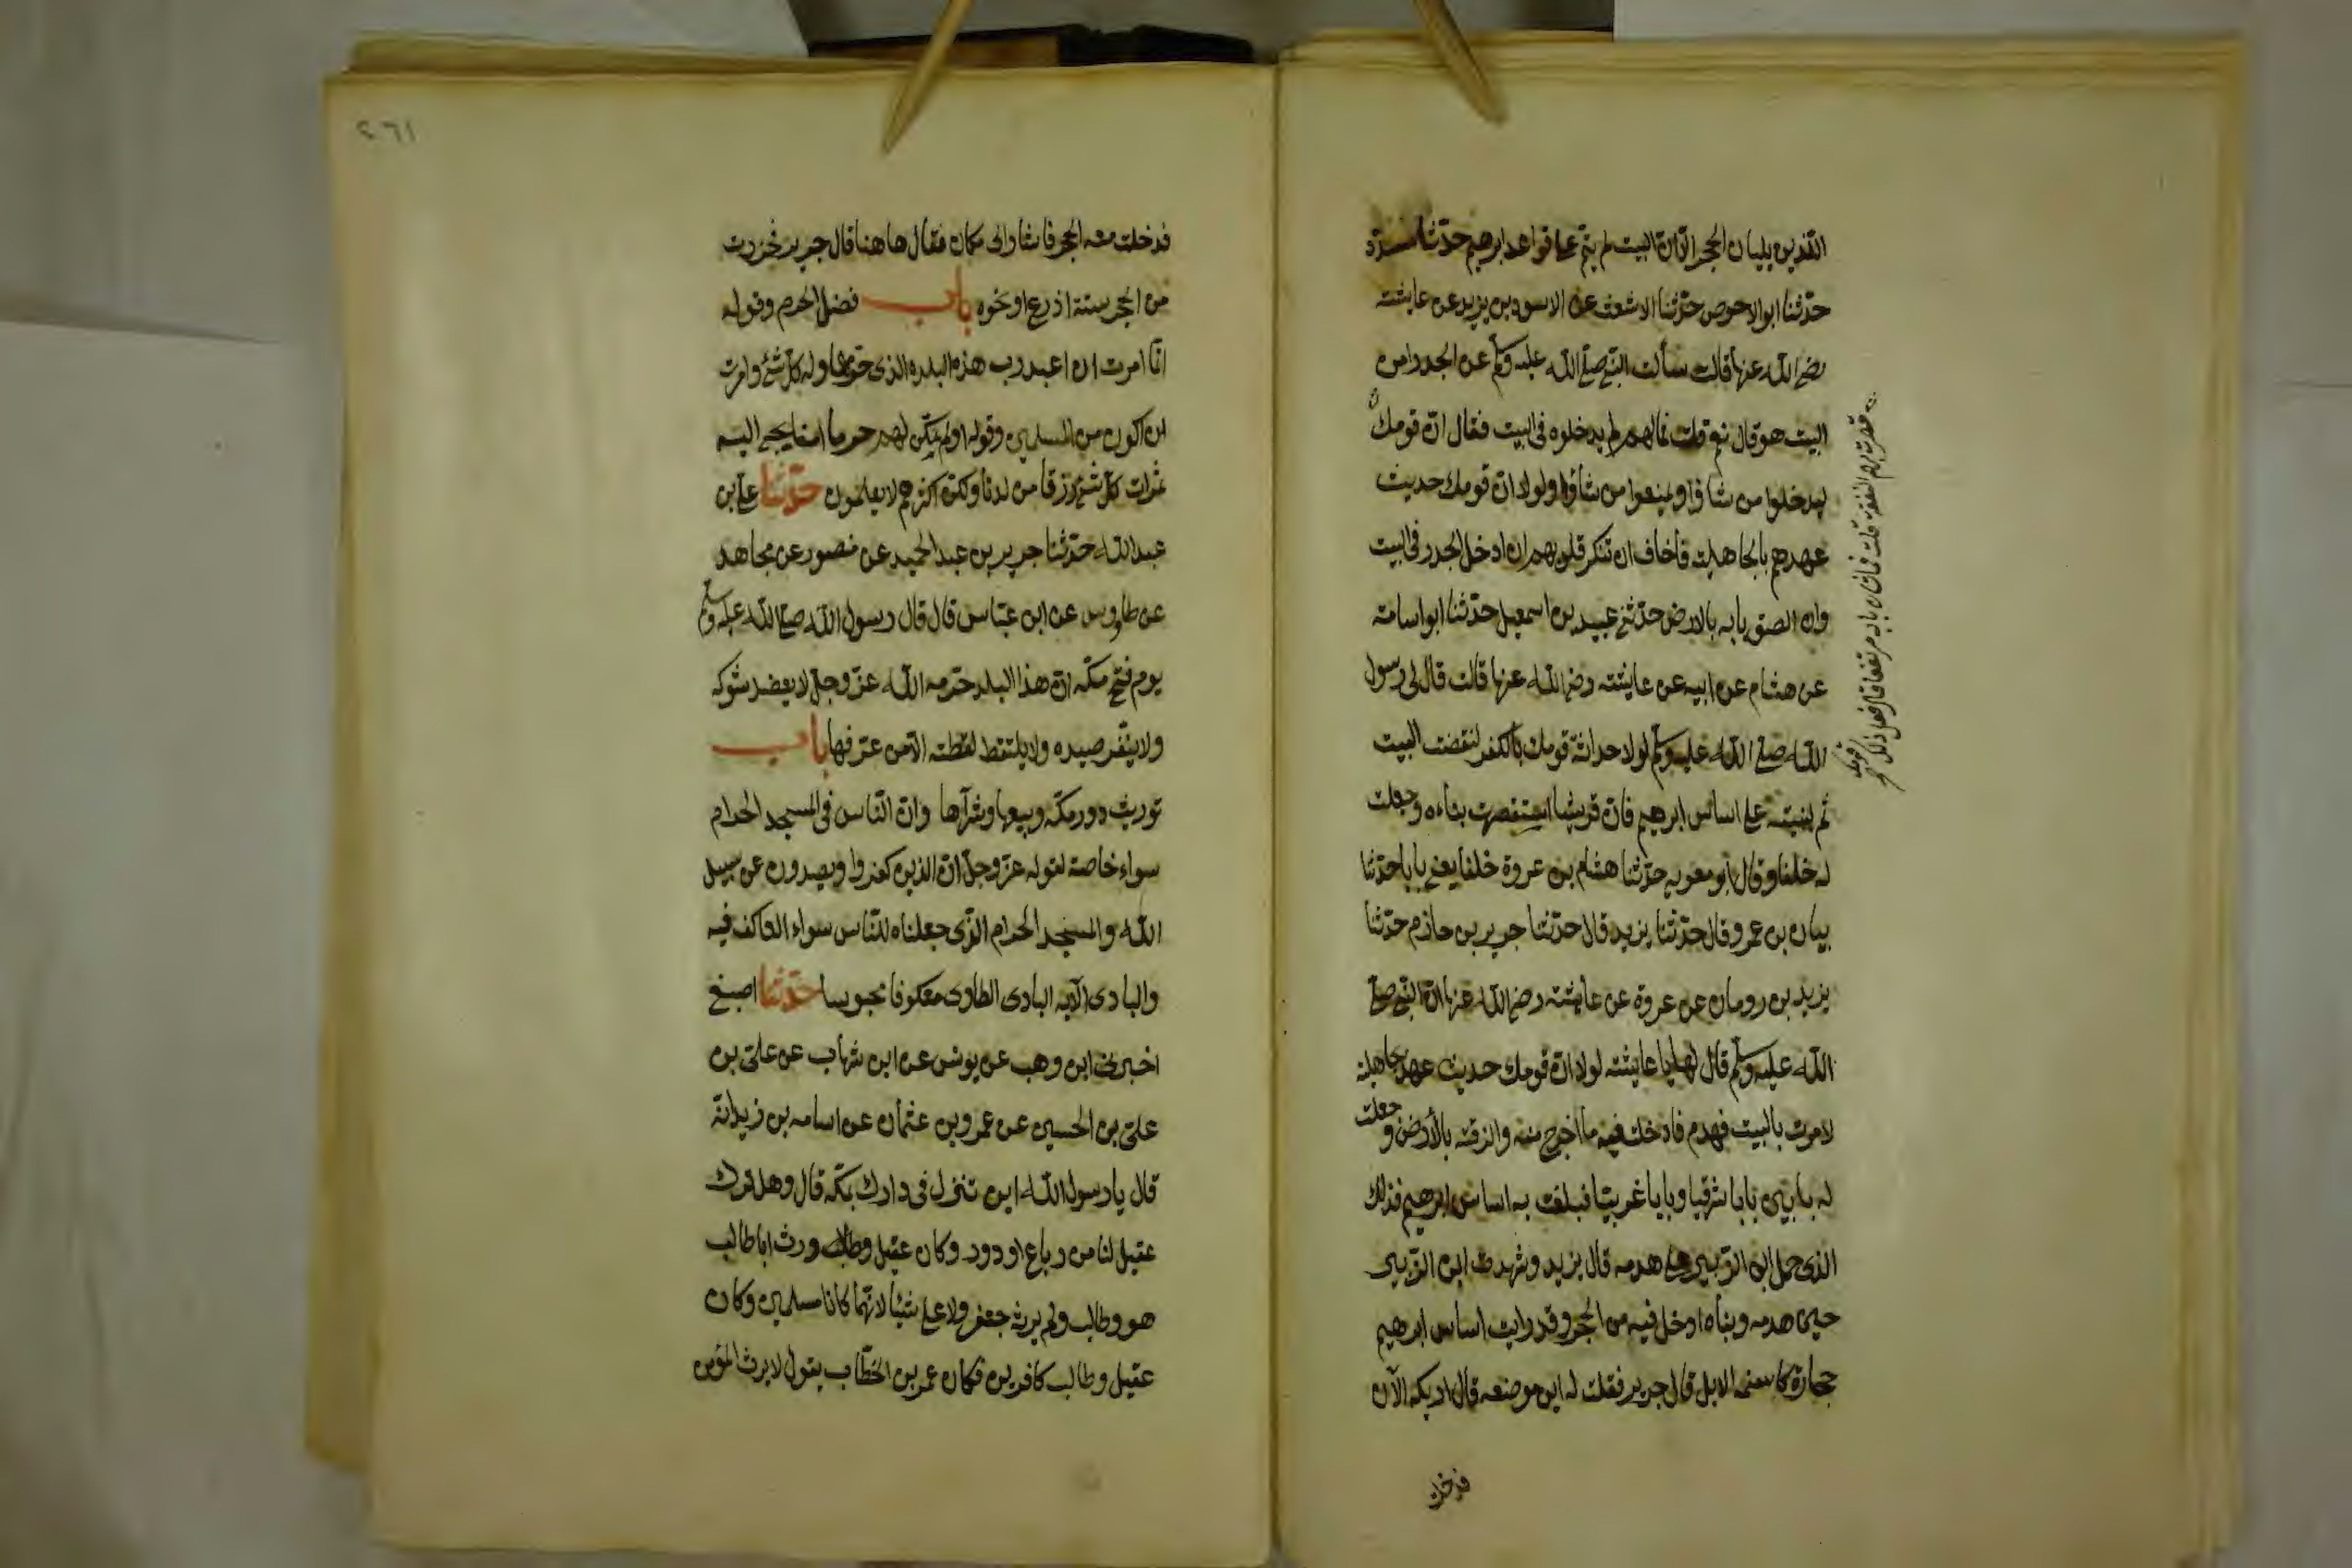 الذين يليان الحجر الا ان البيت لم يتم على قواعد ابرهيم حدثنا مسدد
حدثنا ابو الاحوص حدثنا الاشعث عن الاسود بن يزيد عن عايشة
رضى الله عنها قالت سألت النبى صلى الله عليه وسلم عن الجدر امن
البيت هو قال نعم قلت فما لهم لم يدخلوه فى البيت فقال ان قومك
قصرت بهم النفقة قلت فما شان بابه مرتفعا قال فعل ذلك قومك
ليدخلوا من شاؤا ويمنعوا من شاؤا ولولا ان قومك حديث
عهدهم بالجاهلية فاخاف ان تنكر قلوبهم ان ادخل الجدر فى البيت
وان الصق بابه بالارض حدثنى عبيد بن اسمعيل حدثنا ابو اسامة
عن هشام عن ابيه عن عايشة رضى الله عنها قالت قال لى رسول
الله صلى الله عليه وسلم لولا حداثة قومك بالكفر لنقضت البيت
ثم لبنيته على اساس ابرهيم فان قريشا استقصرت بناءه وجعلت
له خلفا وقال ابو معوية حدثنا هشام بن عروة خلفا يعنى بابا حدثنا
بيان بن عمرو قال حدثنا يزيد قال حدثنا جرير بن حازم حدثنا
يزيد بن رومان عن عروة عن عايشة رضى الله عنها ان النبى صلى
الله عليه وسلم قال لها يا عايشة لولا ان قومك حديث عهد بجاهلية
لامرت بالبيت فهدم فادخلت فيه ما اخرج منه والزقته بالأرض وجعلت
له بابين بابا شرقيا وبابا غربيا فبلغت به اساس ابرهيم فذلك
الذى حمل ابن الزبير على هدمه قال يزيد وشهدت ابن الزبير
حين هدمه وبناه وادخل فيه من الحجر وقد رايت اساس ابرهيم
حجارة كاسنمة الابل قال جرير فقلت له اين موضعه قال اريكه الآن
فدخلت
٢٦١
فدخلت معه الحجر فاشار الى مكان فقال هاهنا قال جرير فحزرت
من الحجر ستة اذرع او نحوه باب فضل الحرم وقوله
انما امرت ان اعبد رب هذه البلدة الذى حرمها وله كل شئ وامرت
ان اكون من المسلمين وقوله اولم نمكن لهم حرما امنا يجبى اليه
ثمرات كل شئ رزقا من لدنا ولكن اكثرهم لا يعلمون حدثنا على بن
عبد الله حدثنا جرير بن عبد الحميد عن منصور عن مجاهد
عن طاووس عن ابن عباس قال قال رسول الله صلى الله عليه وسلم
يوم فتح مكة ان هذا البلد حرمه الله عز وجل لا يعضد شوكه
ولا ينفر صيده ولا يلتقط لقطته الا من عرفها باب
توريث دور مكة وبيعها وشرآها وان الناس فى المسجد الحرام
سواء خاصة لقوله عز وجل ان الذين كفروا ويصدون عن سبيل
الله والمسجد الحرام الذى جعلناه للناس سواء العاكف فيه
والبادى الآية البادى الطارى معكوفا محبوسا حدثنا اصبغ
اخبرنى ابن وهب عن يونس عن ابن شهاب عن على بن
على بن الحسين عن عمرو بن عثمان عن اسامه بن زيد انه
قال يا رسول الله اين تنزل فى دارك بمكة قال وهل ترك
عقيل لنا من رباع او دور وكان عقيل وطالب ورث ابا طالب
هو وطالب ولم يرثه جعفر ولا على شيئا لانهما كانا مسلمين وكان
عقيل وطالب كافرين فكان عمر بن الخطاب يقول لا يرث المؤمن